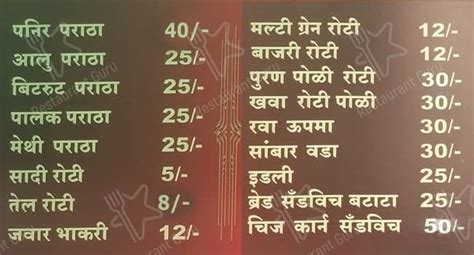 पनिर पराठा 40/-
आलु पराठा 25/-
बिटरुट पराठा 25/-
पालक पराठा 25/-
मेथी पराठा 25/-
सादी रोटी 5/-
तेल रोटी 8/-
जवार भाकरी 12/-
मल्टी ग्रेन रोटी 12/-
बाजरी रोटी 12/-
पुरण पोळी रोटी 30/-
खवा रोटी पोळी 30/-
रवा ऊपमा 30/-
सांबार वडा 30/-
इडली 25/-
ब्रेड सँडविच बटाटा 25/-
चिज कार्न सँडविच 50/-
Restaurant Guru